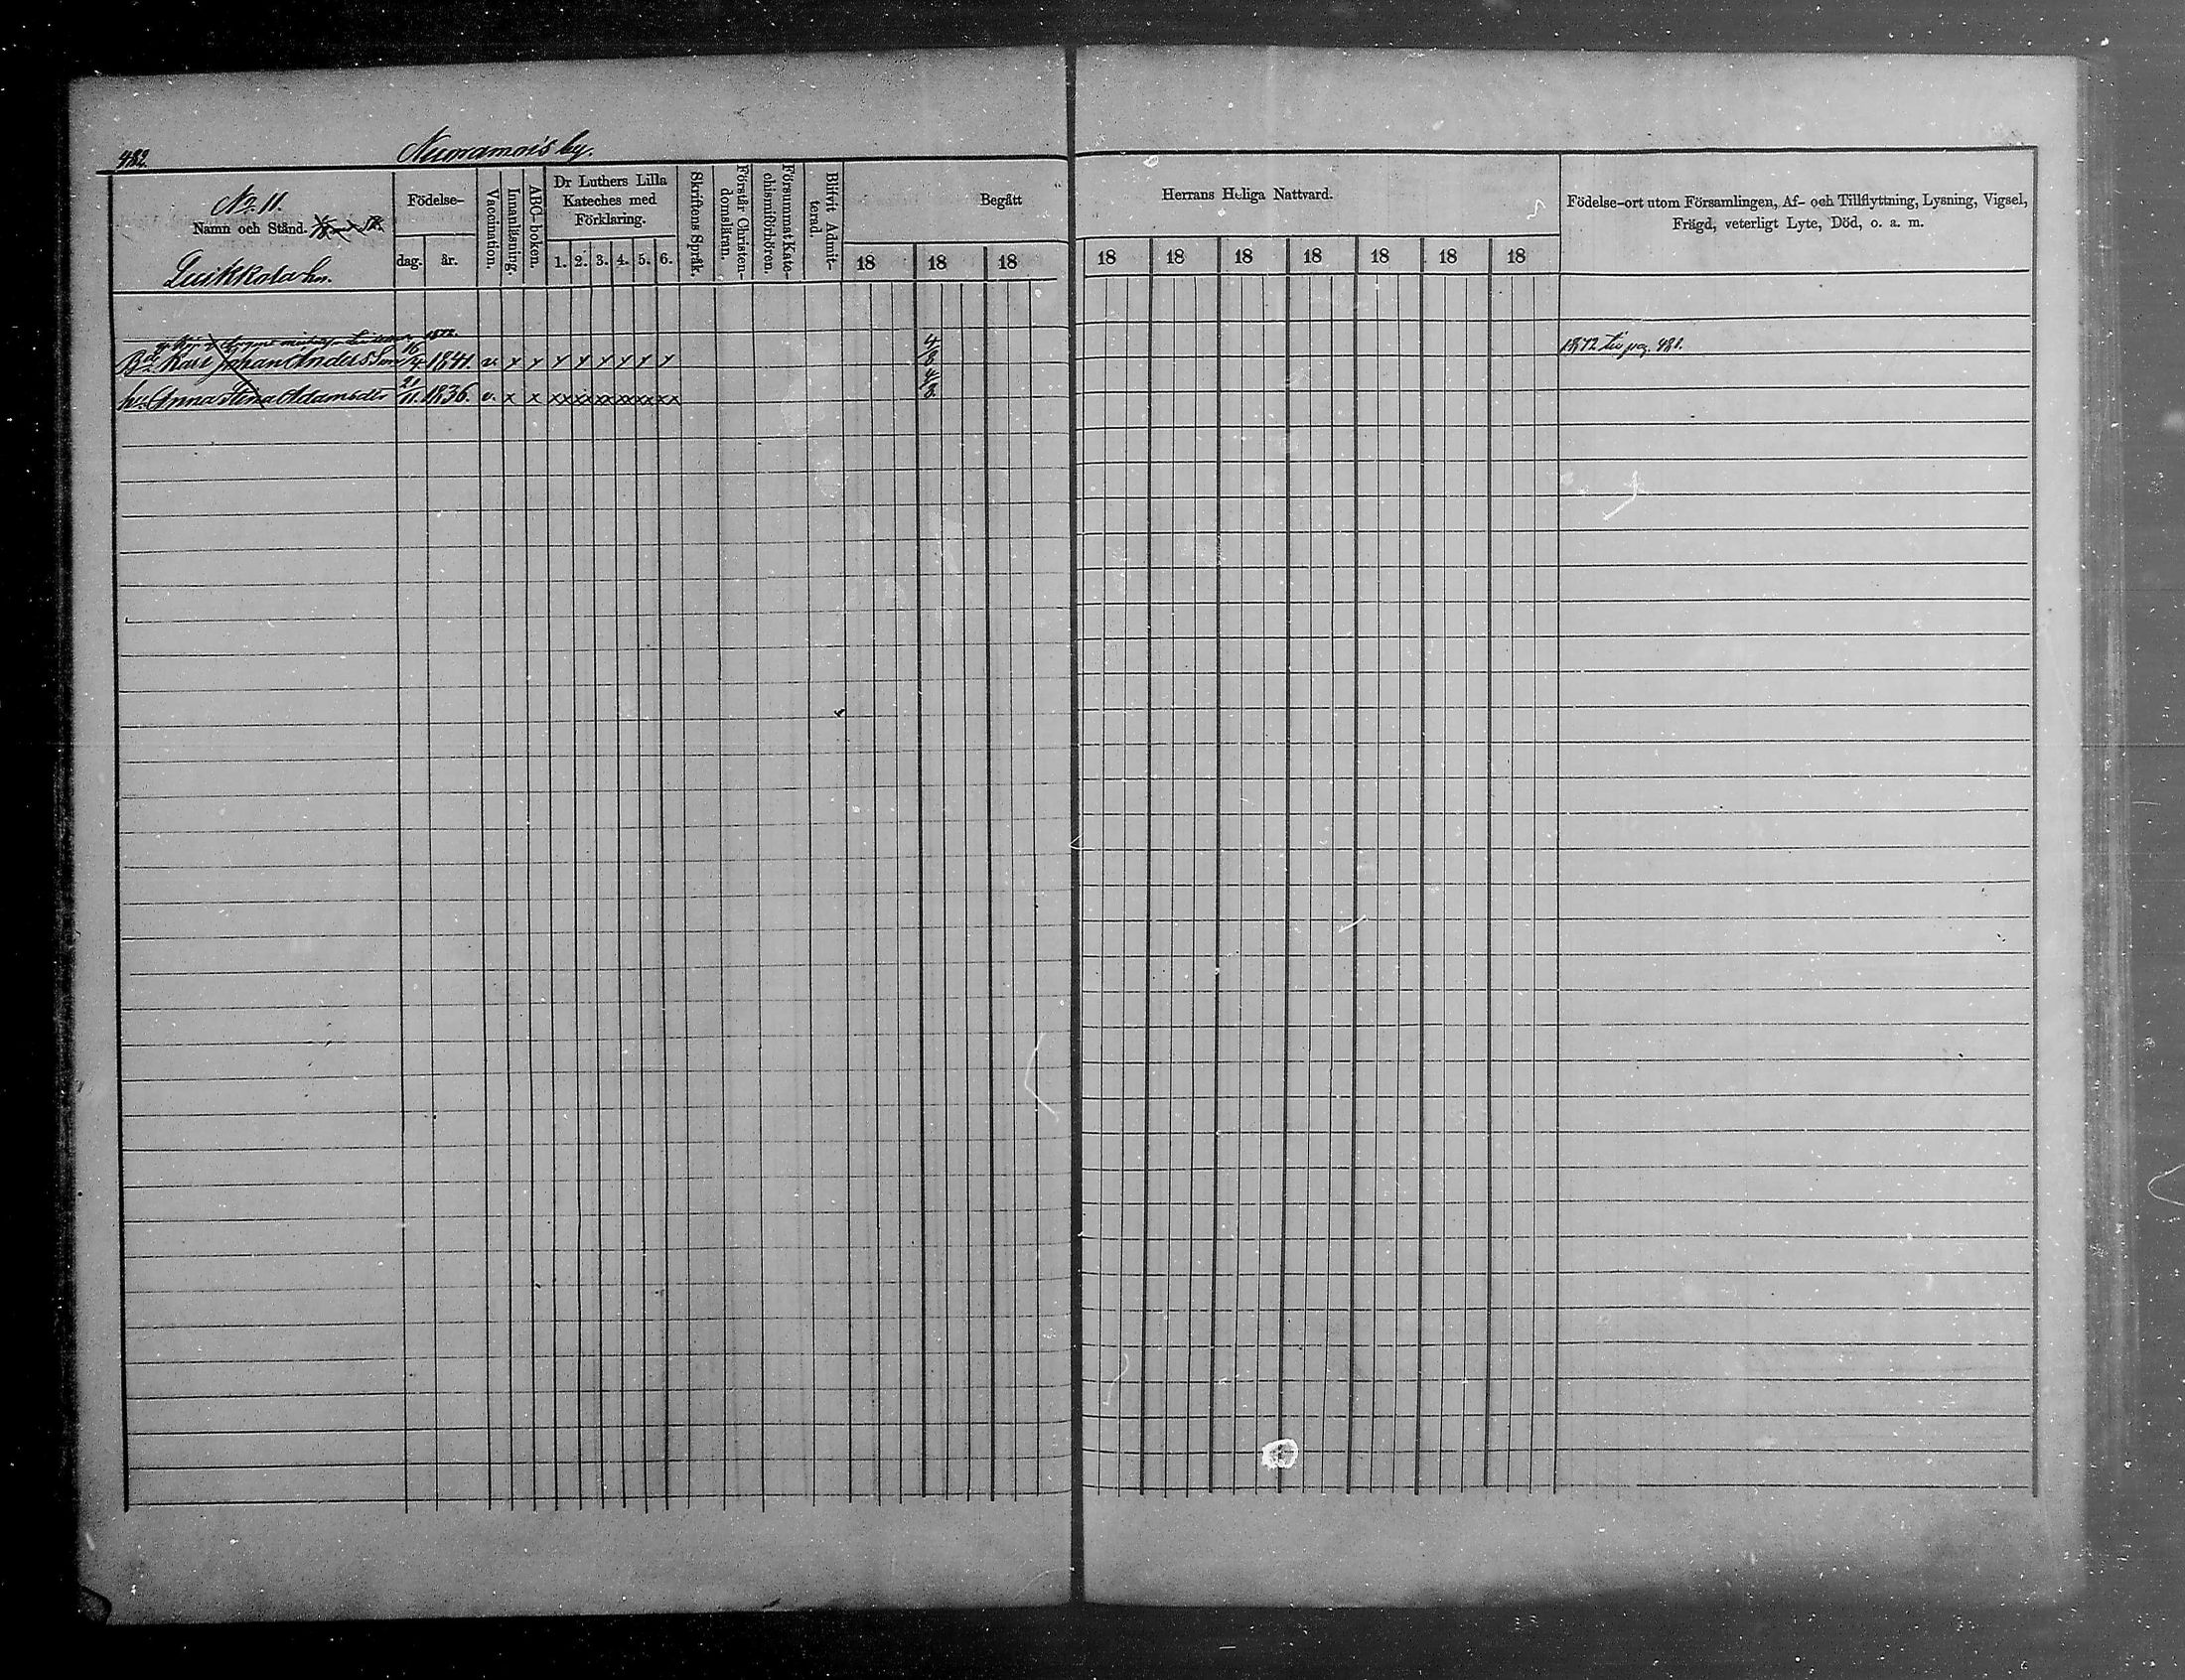 482.
Nuoramois by.
No 11.
Namn och Stånd.
Födelse-
dag. år.
Vaccination.
Innanläsning.
ABC-boken.
Dr Luthers Lilla
Kateches med
Förklaring.
1. 2. 3. 4. 5. 6.
Skriftens Språk.
Förstår Christen-
domsläran.
Försummat Kate-
chismiförhören.
Blifvit Admit-
terad.
Begått
18 18 18
Herrans Heliga Nattvard.
18 18 18 18 18 18 18
Födelse-ort utom Församlingen, Af- och Tillflyttning, Lysning, Vigsel,
Frägd, veterligt Lyte, Död, o. a. m.
1872.
Karl Johan Andersson 16/4 1841. v. x x x x x x x x 4/8 1872 till pag. 481.
hu. Anna Stina Adamsdr 21/11. 1836. v. x x xx xx xx xx xx xx 4/8